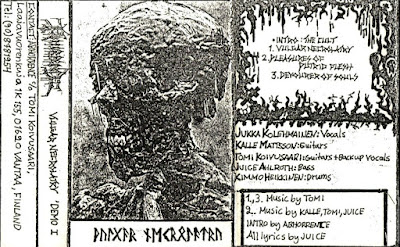 CONTACT: ABHORRENCE c/o TOMI KOIVUSAARI,
Laajavuorenkuja 1K 155, 01620 VANTAA, FINLAND
Tel: (90)8981254
VULGAR NECROLATRY DEMO I
•INTRO: THE CULT
1. VULGAR NECROLATRY
2. PLEASURES OF
PUTRID FLESH
3. DEVOURER OF SOULS
JUKKA KOLEHMAINEN: Vocals
KALLE MATTSSON: Guitars
TOMI KOIVUSAARI: Guitars + Backup Vocals
JUICE AHLROTH: Bass
KIMMO HEIKKINEN: Drums
1., 3. Music by TOMI
2.. Music by KALLE, TOMI, JUICE
INTRO by ABHORRENCE
All lyrics by JUICE